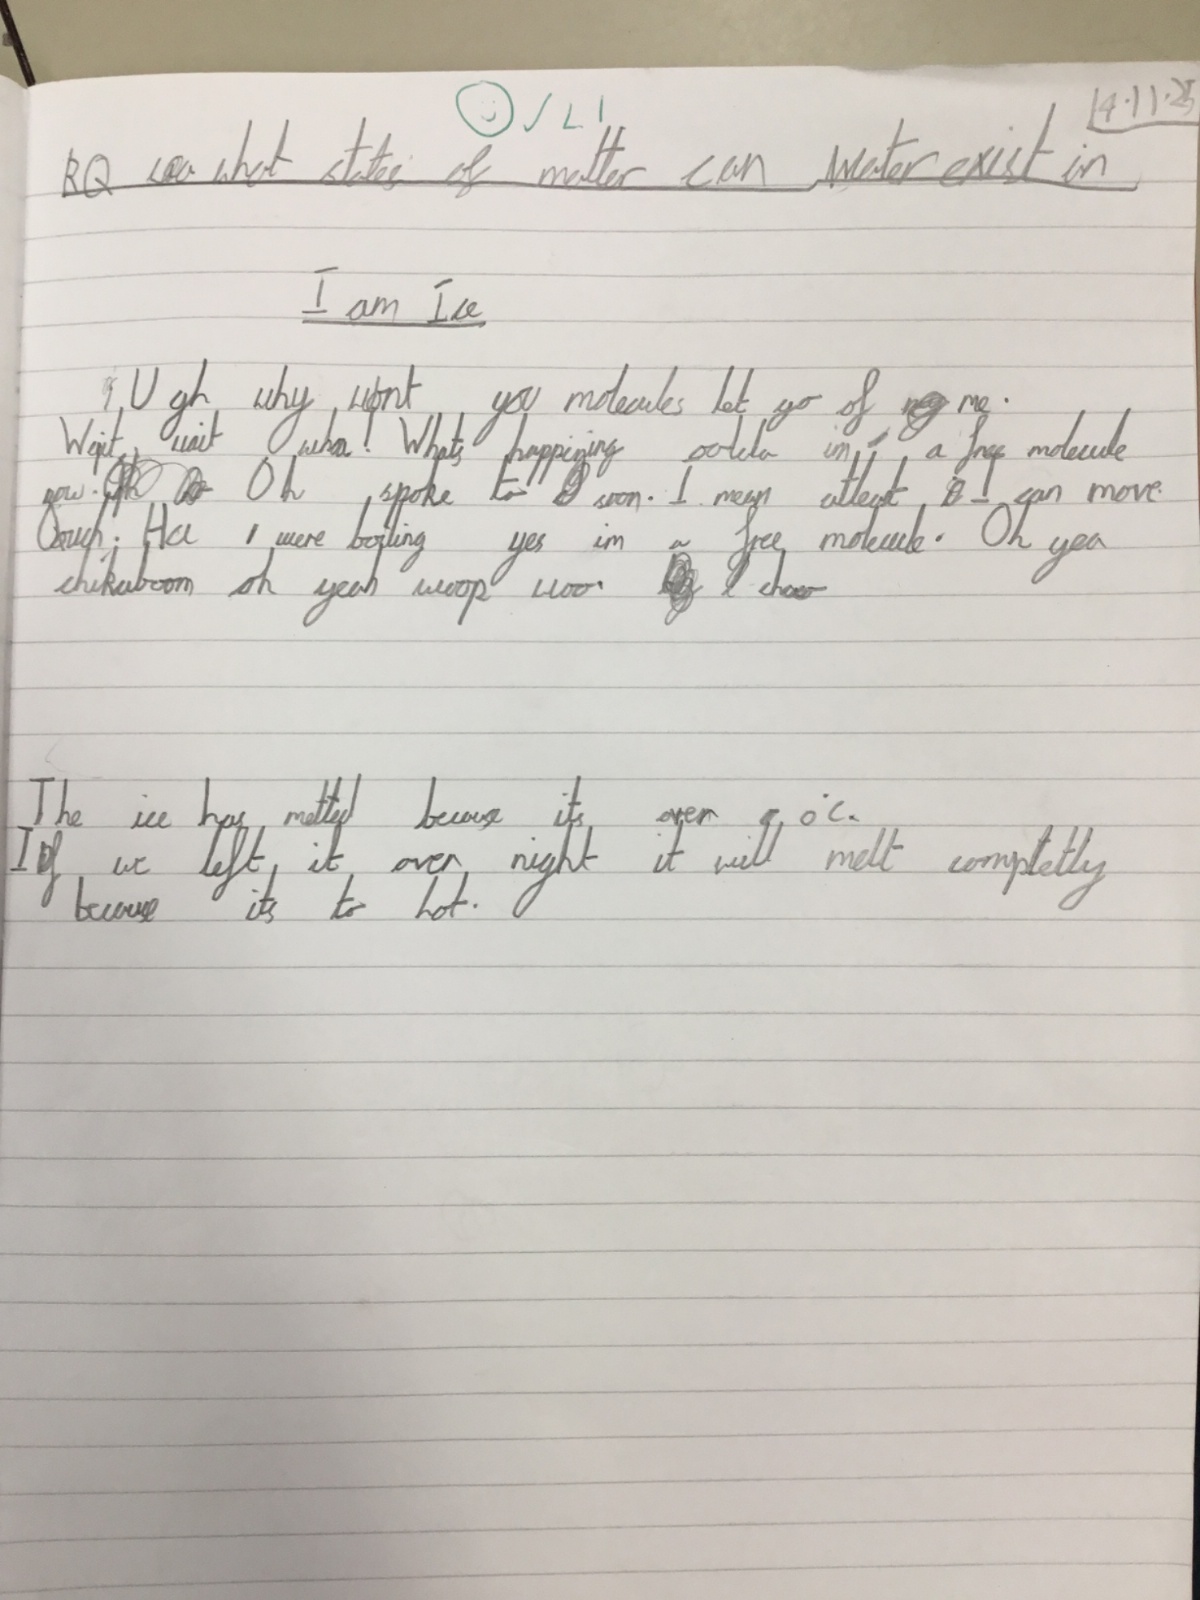 ✓ L I
14.11.25
BQ what states of matter can water exist in
I am Ice
Ugh why wont you molecules let go of me.
Wait, wait wha! Whats happining im a free molecule
now. Oh spoke to soon. I mean atleast I can move.
Ouch. Ha were boiling yes im a free molecule. Oh yea
chikaboom oh yeah woop woo. I
The ice has melted becouse its over 0°c.
If we left it over night it will melt completly
becouse its to hot.